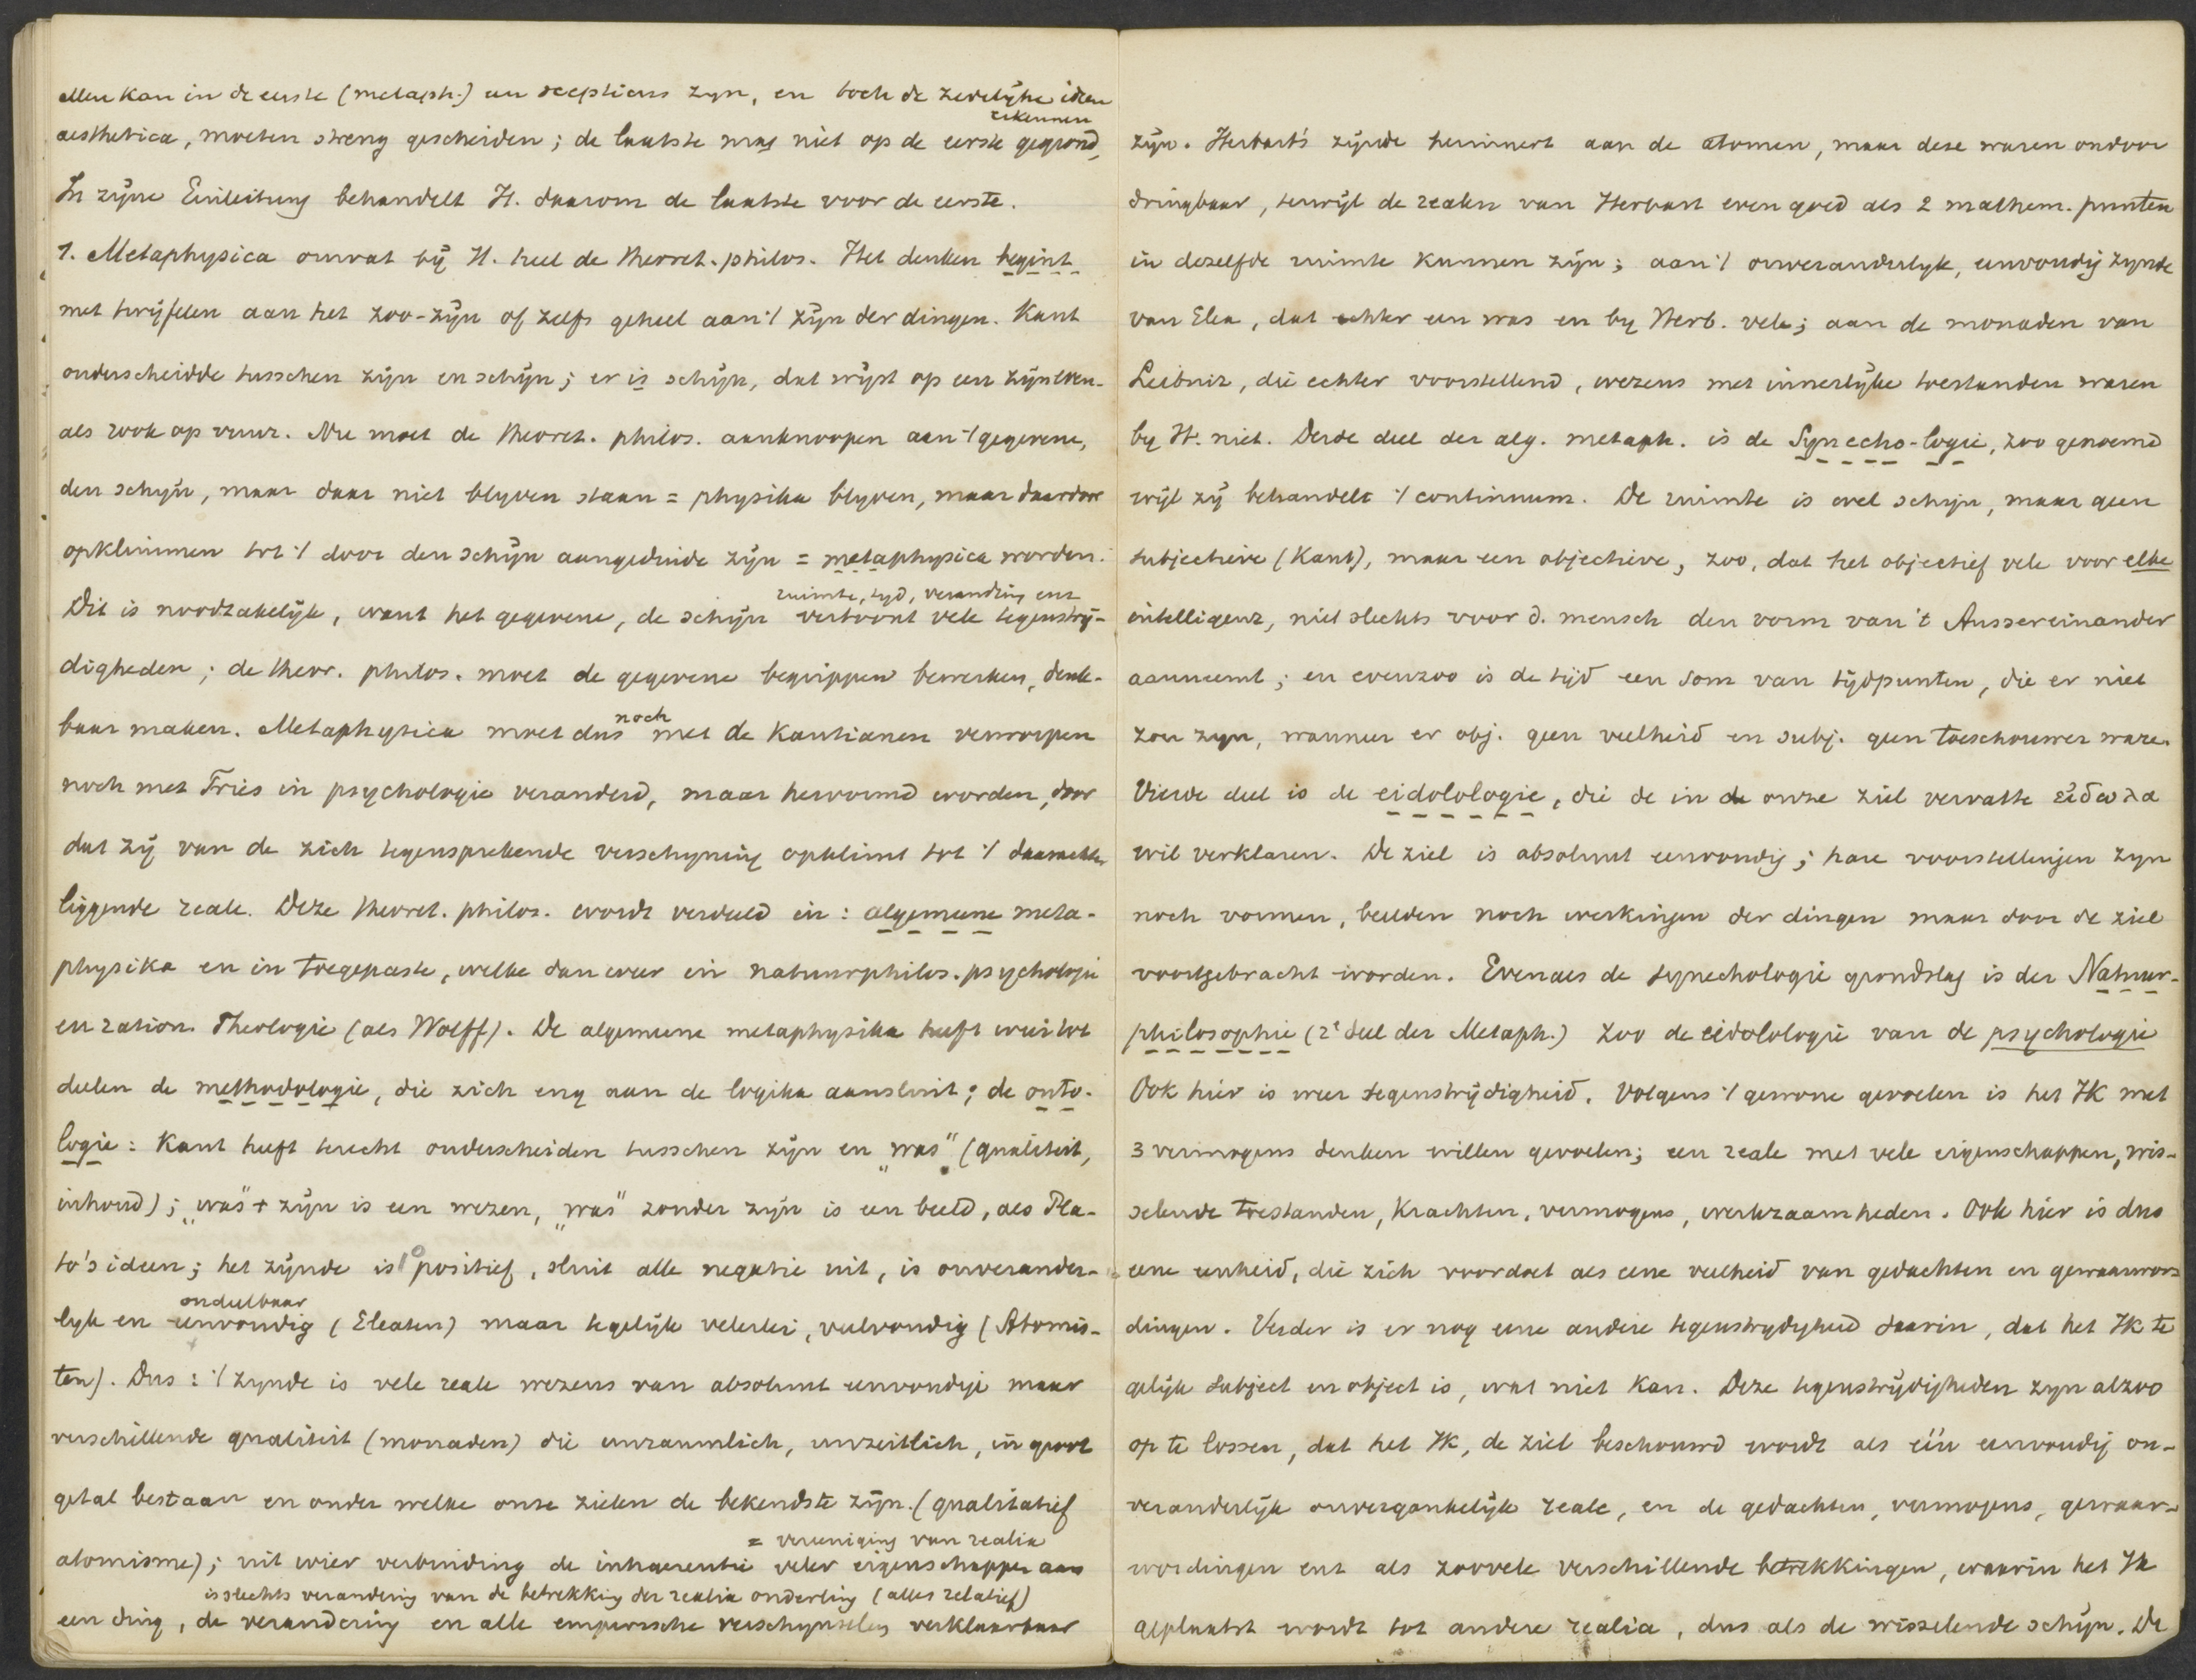 Men kan in de eerste (metaph.) een scepticus zyn, en toch de zedelijke ideen
erkennen
aesthetica, moeten streng gescheiden; de laatste mag niet op de eerste gegrond,
In zijne Einleitung behandelt H. daarom de laatste voor de eerste.
1. Metaphysica omvat bij H. heel de theoret. philos. Het denken begint
met twijfelen aan het zoo-zijn of zelfs geheel aan 't zijn der dingen. Kant
onderscheidde tusschen zijn en schijn; er is schijn, dat wijst op een zijn even-
als rook op vuur. Nu moet de theoret. philos. aanknoopen aan 't gegevene,
den schijn, maar daar niet blyven staan = physika blyven, maar daardoor
opklimmen tot 't door den schijn aangeduide zijn = metaphysica worden.
ruimte, tyd, verandring enz
Dit is noodzakelijk, want het gegevene, de schijn vertoont vele tegenstrij-
digheden; de theor. philos. moet de gegevene begrippen bewerken, denk-
baar maken. Metaphysica moet dus noch met de Kantianen verworpen
noch met Fries in psychologie veranderd, maar hervormd worden, door
dat zij van de zich tegensprekende verschyning opklimt tot 't daarachter
liggende reale. Deze theoret. philos. wordt verdeeld in: algemeene meta-
physika en in toegepaste, welke dan weer in natuurphilos. psychologie
en ration. Theologie (als Wolff). De algemeene metaphysika heeft weer tot
deelen de methodologie, die zich eng aan de logika aansluit; de onto-
logie: Kant heeft terecht onderscheiden tusschen zijn en „was" (qualiteit,
inhoud); „was" + zijn is een wezen, „was" zonder zijn is een beeld, als Pla-
to's ideen; het zijnde is 1° positief, sluit alle negatie uit, is onverander-
ondeelbaar
lyk en eenvoudig (Eleaten) maar tegelijk velerlei, veelvoudig (Atomis-
ten). Dus: 't zynde is vele reale wezens van absoluut eenvoudige maar
verschillende qualiteit (monaden) die unraumlich, unzeitlich, in groot
getal bestaan en onder welke onze zielen de bekendste zijn. (qualitatief
= vereeniging van realia
atomisme); uit wier verbinding de inhaerentie veler eigenschappen aan
is slechts verandering van de betrekking der realia onderling (alles relatief)
een ding, de verandering en alle empirische verschynselen verklaarbaar
zijn. Herbart's zijnde herinnert aan de atomen, maar deze waren ondoor
dringbaar, terwijl de realen van Herbart even goed als 2 mathem. punten
in dezelfde ruimte kunnen zijn; aan 't onveranderlyk, eenvoudig zynde
van Elea, dat echter een was en by Herb. vele; aan de monaden van
Leibniz, die echter voorstellend, wezens met innerlijke toestanden waren
by H. niet. Derde deel der alg. metaph. is de Synecho-logie, zoo genoemd
wijl zij behandelt 't continuum. De ruimte is wel schijn, maar geen
subjectieve (Kant), maar een objectieve, zoo, dat het objectief vele voor elke
intelligenz, niet slechts voor d. mensch den vorm van 't Aussereinander
aanneemt; en evenzoo is de tijd een som van tijdpunten, die er niet
zou zyn, wanneer er obj. geen veelheid en subj. geen toeschouwer ware.
Vierde deel is de eidolologie, die de in onze ziel vervatte εἴδωλα
wil verklaren. De ziel is absoluut eenvoudig; hare voorstellingen zyn
noch vormen, beelden noch werkingen der dingen maar door de ziel
voortgebracht worden. Evenals de synechologie grondslag is der Natuur-
philosophie (2e deel der Metaph.) zoo de eidolologie van de psychologie
Ook hier is weer tegenstrijdigheid. Volgens 't gewone gevoelen is het IK met
3 vermogens denken willen gevoelen; een reale met vele eigenschappen, wis-
selende toestanden, krachten, vermogens, werkzaamheden. Ook hier is dus
eene eenheid, die zich voordoet als eene veelheid van gedachten en gewaarwor-
dingen. Verder is er nog eene andere tegenstrydigheid daarin, dat het IK te
gelijk subject en object is, wat niet kan. Deze tegenstrijdigheden zyn alzoo
op te lossen, dat het IK, de ziel beschouwd wordt als één eenvoudig on-
veranderlijk onvergankelijk reale, en de gedachten, vermogens, gewaar-
wordingen enz als zoovele verschillende betrekkingen, waarin het Ik
geplaatst wordt tot andere realia, dus als de wisselende schijn. De